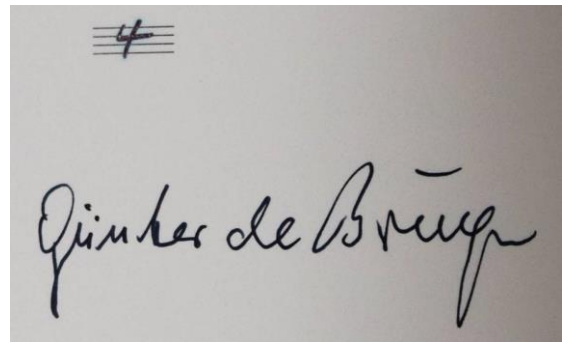 4
Günter de Bruyn